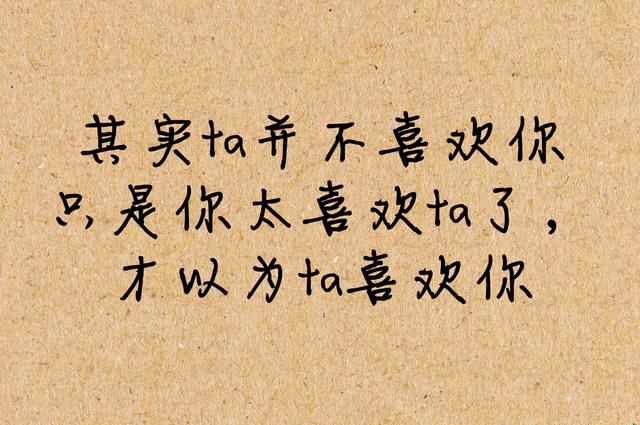 其实ta并不喜欢你
只是你太喜欢ta了，
才以为ta喜欢你